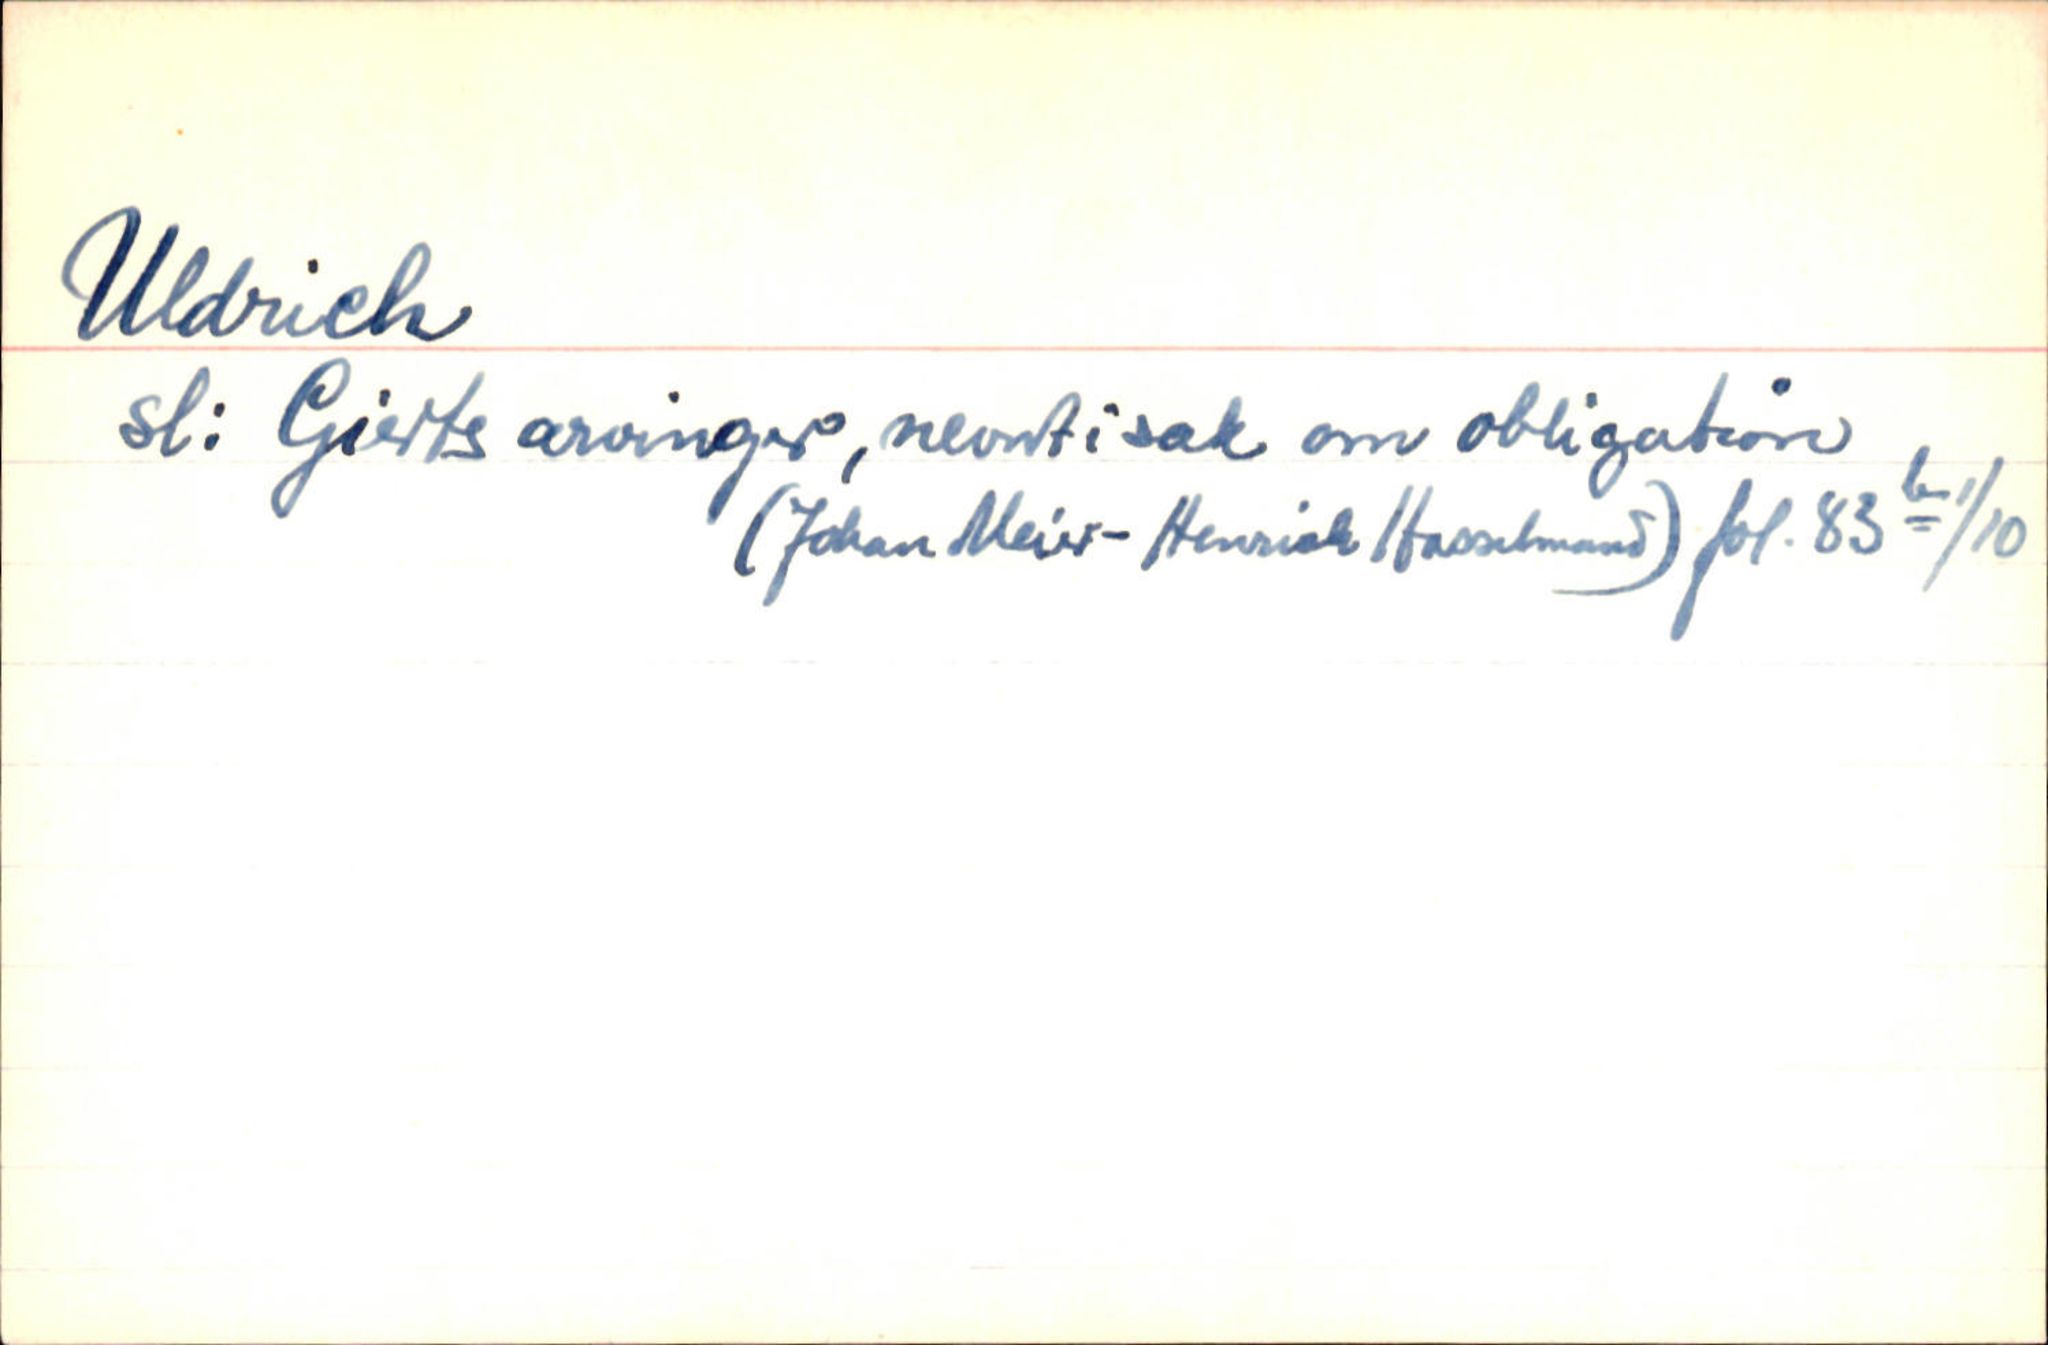 Uldrich
sl: Gierts arvinger, nevnt i sak om obligation
(Johan Meier - Henrich Hasselmand) fol. 83 b 1/10